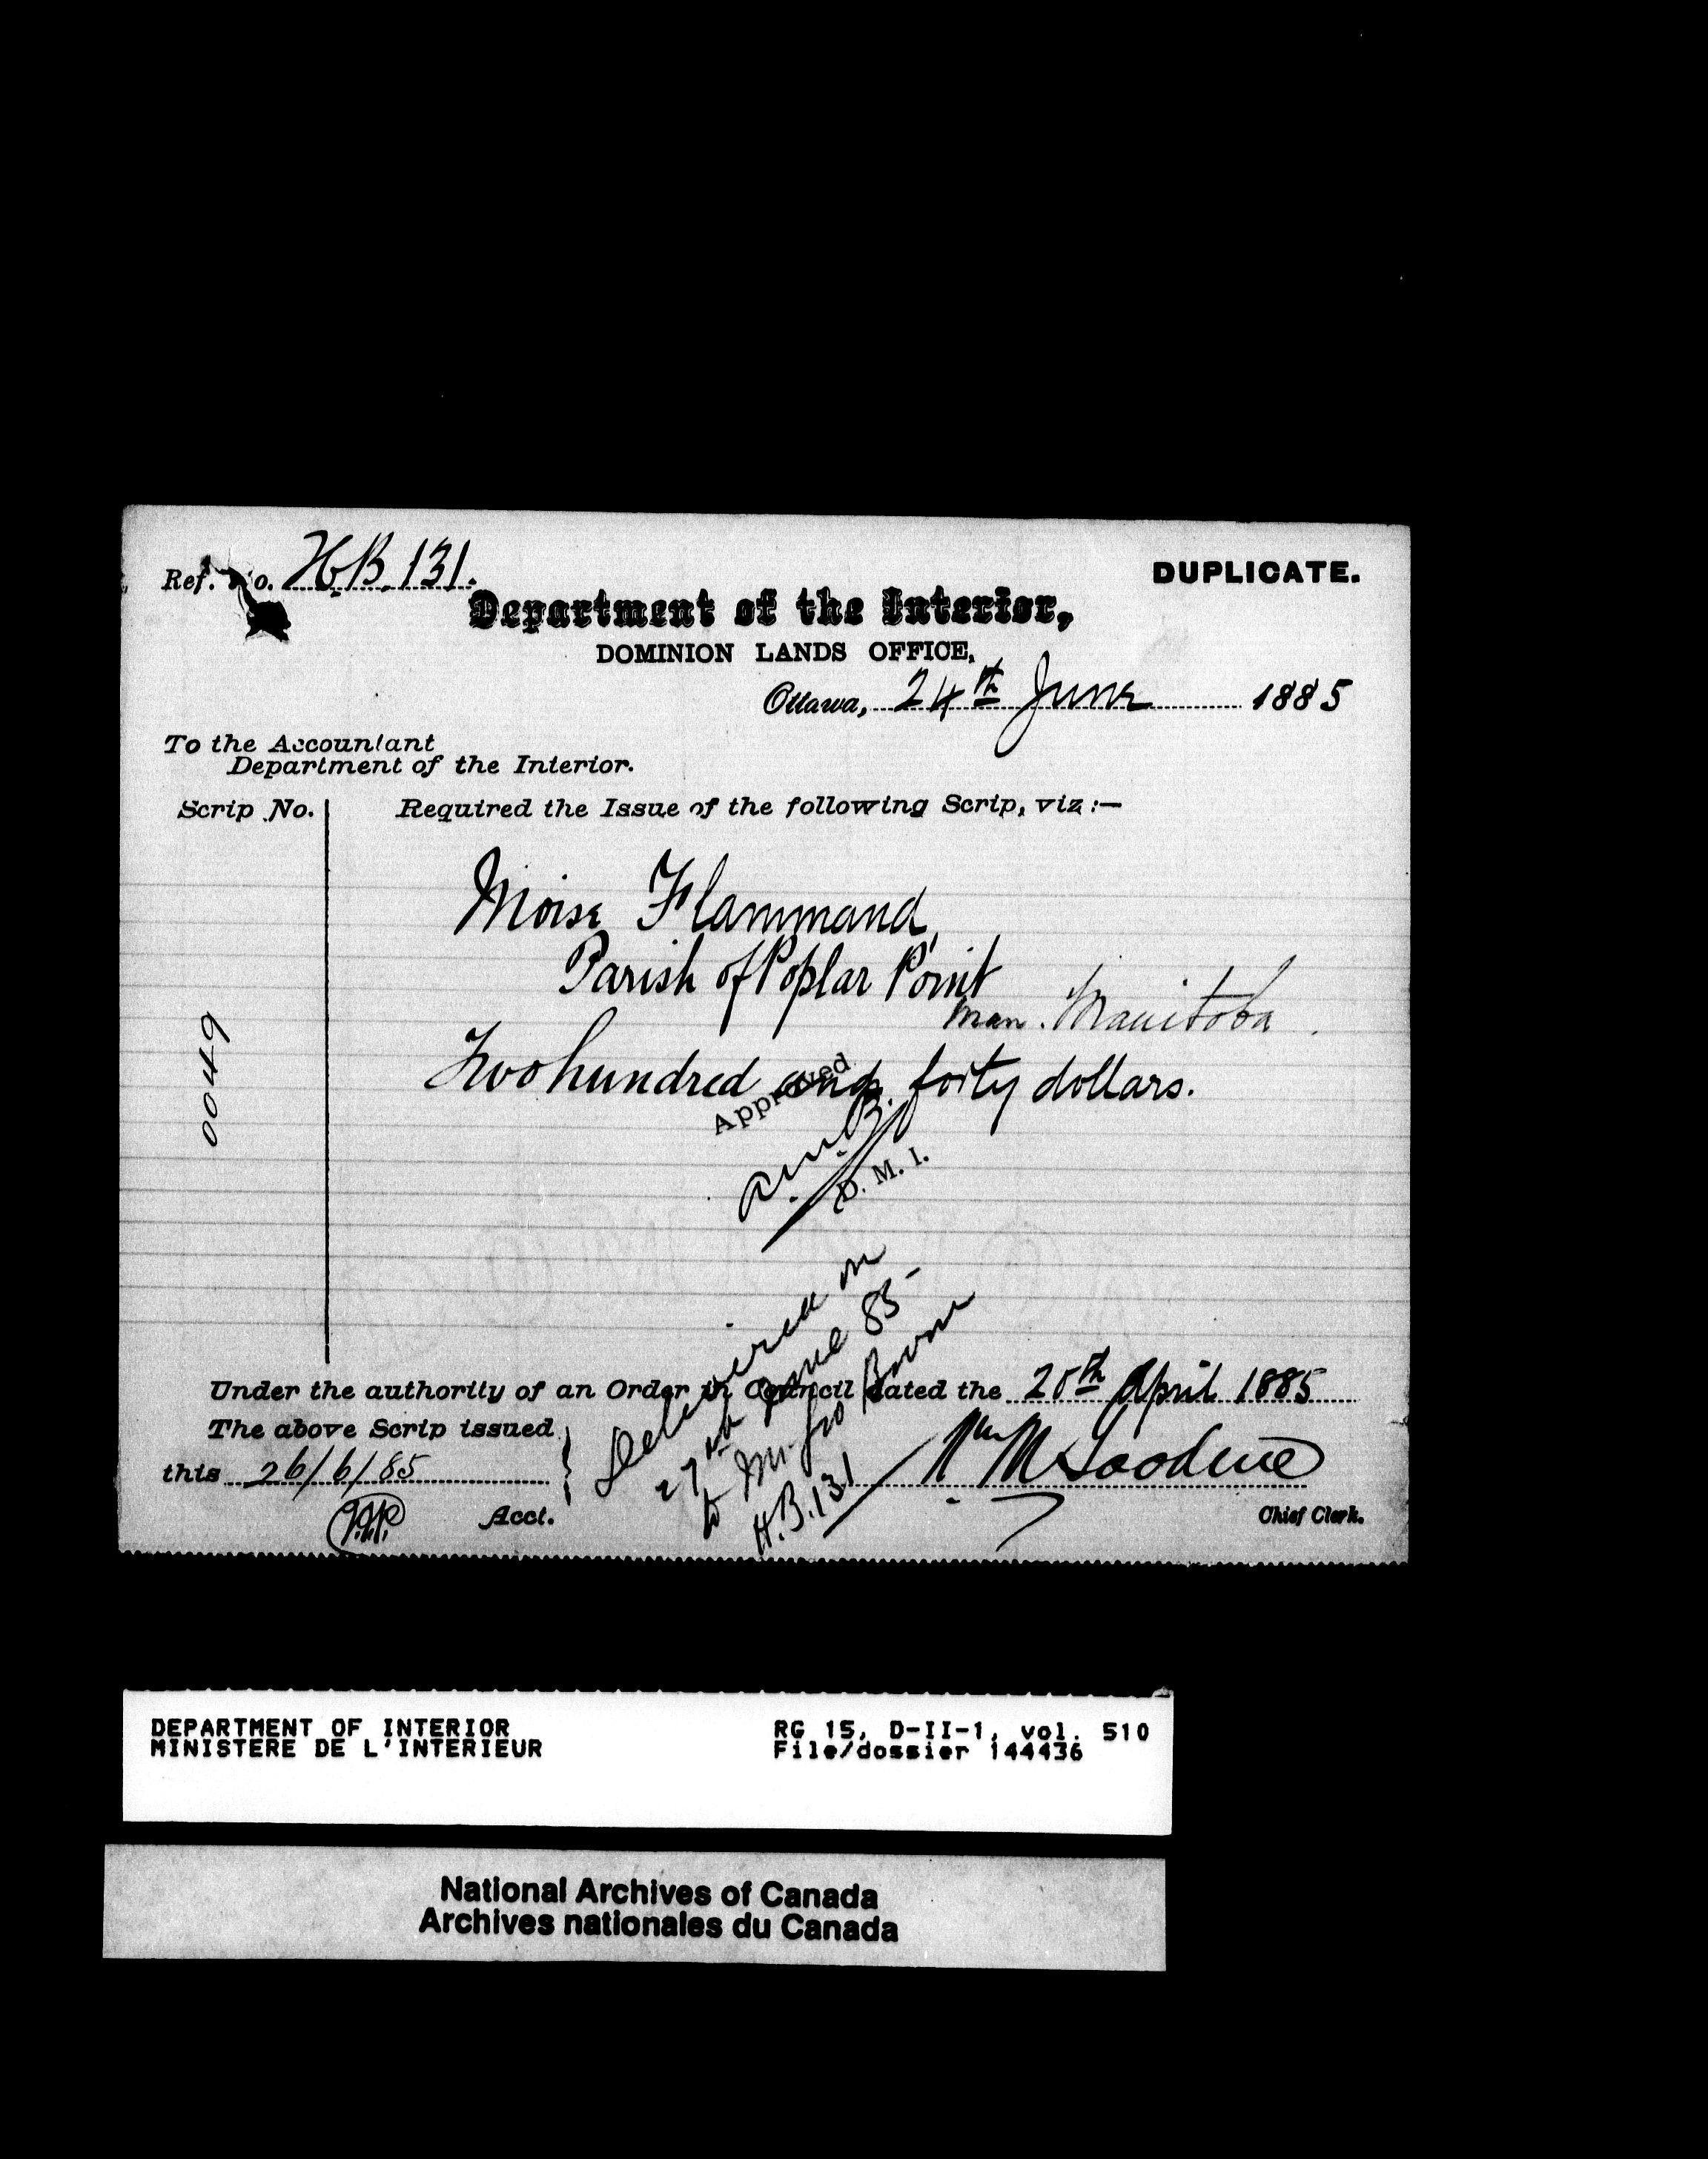 Ref. No. H.B. 131.
DUPLICATE.
Department of the Interior,
DOMINION LANDS OFFICE,
Ottawa, 24th June 1885
To the Accountant
Department of the Interior.
Scrip No.
Required the Issue of the following Scrip, viz:—
Moise Flammand,
Parish of Poplar Point
Man. Manitoba.
Two hundred and forty dollars.
0049
Approved
A.M.B.
D. M. I.
Delivered on
27th June 85-
to Mr. Geo Bourne
H.B.131
Under the authority of an Order in Council dated the 20th April 1885
The above Scrip issued
this 26/6/85
Acct.
Chief Clerk.
DEPARTMENT OF INTERIOR
MINISTERE DE L'INTERIEUR
RG 15, D-II-1, vol. 510
File/dossier 144436
National Archives of Canada
Archives nationales du Canada